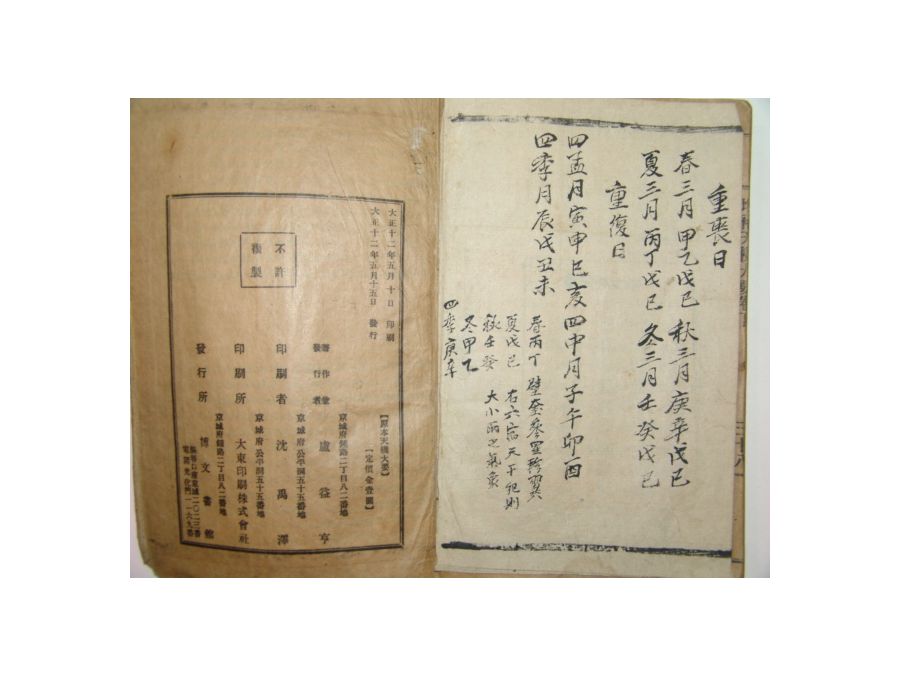 重喪日
春三月甲乙戊己 秋三月庚辛戊己
夏三月丙丁戊己 冬三月壬癸戊己
重復日
四孟月寅申巳亥四中月子午卯酉
四季月辰戌丑未
春丙丁 壁奎參
夏戊己 右六宿天干犯則
秋壬癸 大小雨之氣象
冬甲乙
四季庚辛
【原本天機大要】
【定價金壹圓】
大正十二年五月十日印刷
大正十二年五月十五日發行
不許複製
京城府鍾路二丁目八二番地
著作兼發行者 盧益亨
京城府公平洞五十五番地
印刷者 沈禹澤
京城府公平洞五十五番地
印刷所 大東印刷株式會社
發行所 博文書館
振替口座京城二〇二三番
電話光化門一一六九番